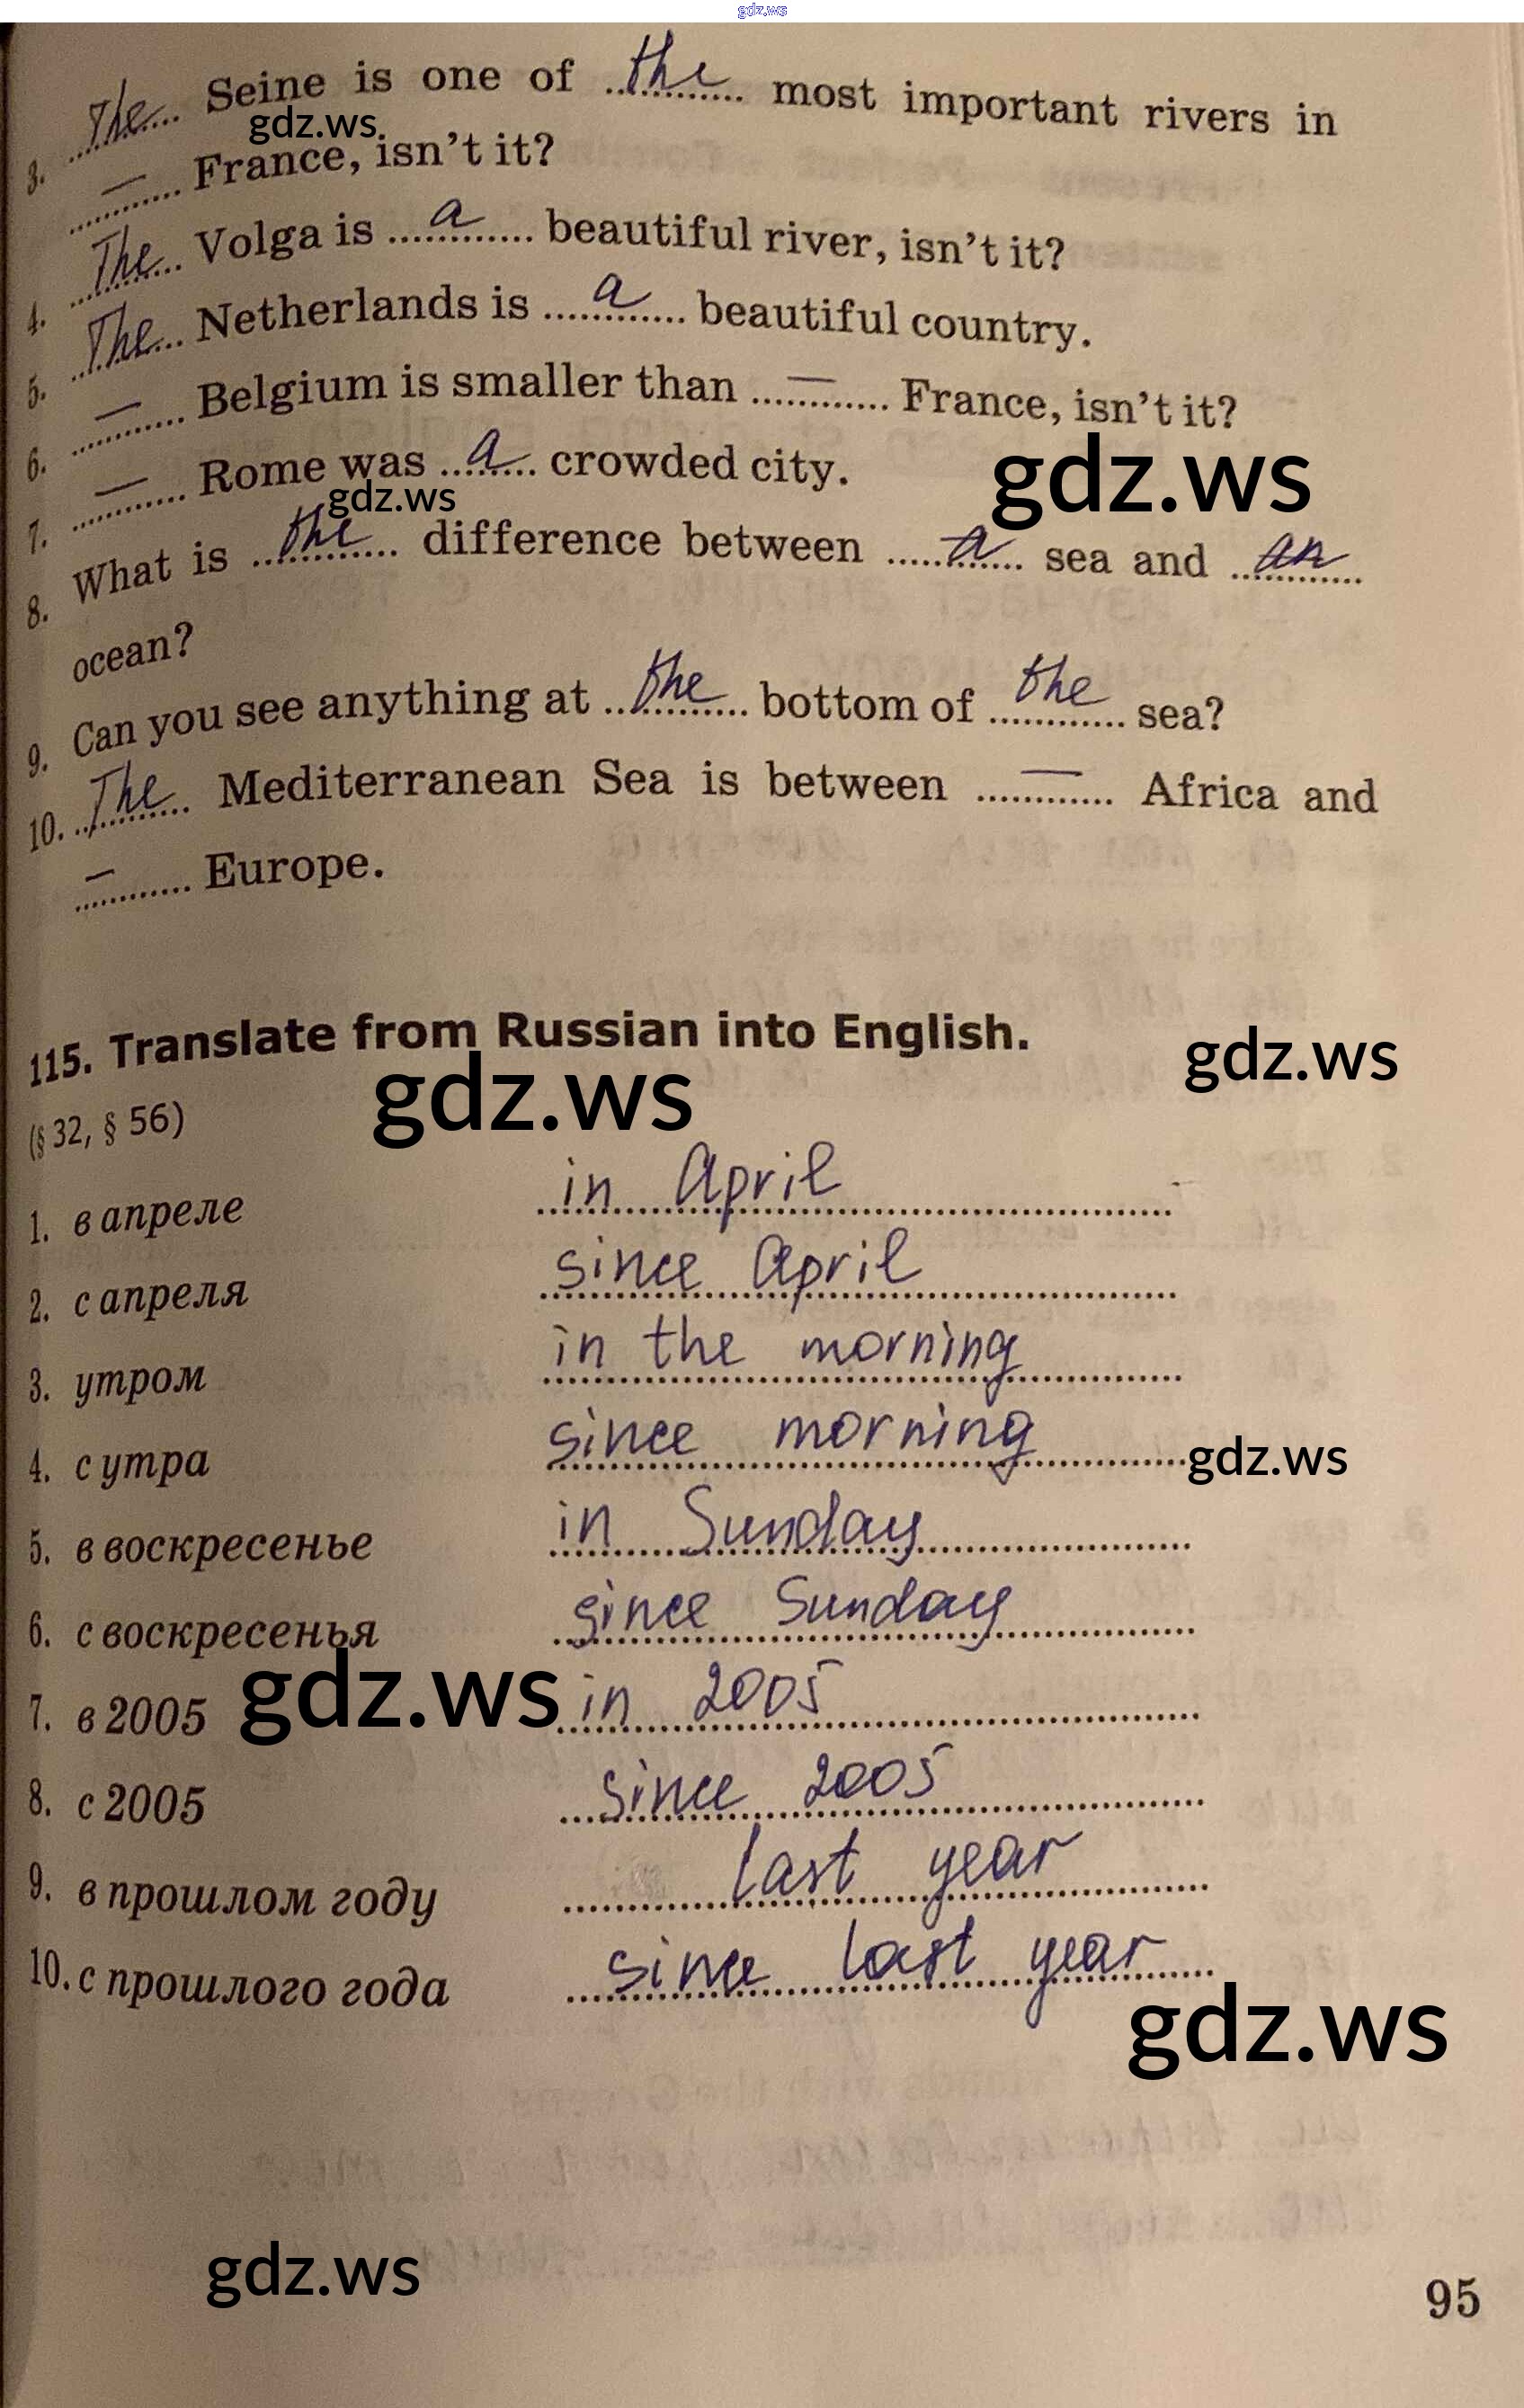 gdz.ws
3. The Seine is one of the most important rivers in
gdz.ws
— France, isn't it?
4. The Volga is a beautiful river, isn't it?
5. The Netherlands is a beautiful country.
6. — Belgium is smaller than — France, isn't it?
7. — Rome was a crowded city.
gdz.ws
gdz.ws
8. What is the difference between a sea and an
ocean?
9. Can you see anything at the bottom of the sea?
10. The Mediterranean Sea is between — Africa and
— Europe.
115. Translate from Russian into English.
gdz.ws
gdz.ws
(§ 32, § 56)
1. в апреле in April
2. с апреля since April
3. утром in the morning
4. с утра since morning
gdz.ws
5. в воскресенье in Sunday
6. с воскресенья since Sunday
7. в 2005 in 2005
gdz.ws
8. с 2005 since 2005
9. в прошлом году last year
10. с прошлого года since last year
gdz.ws
gdz.ws
95